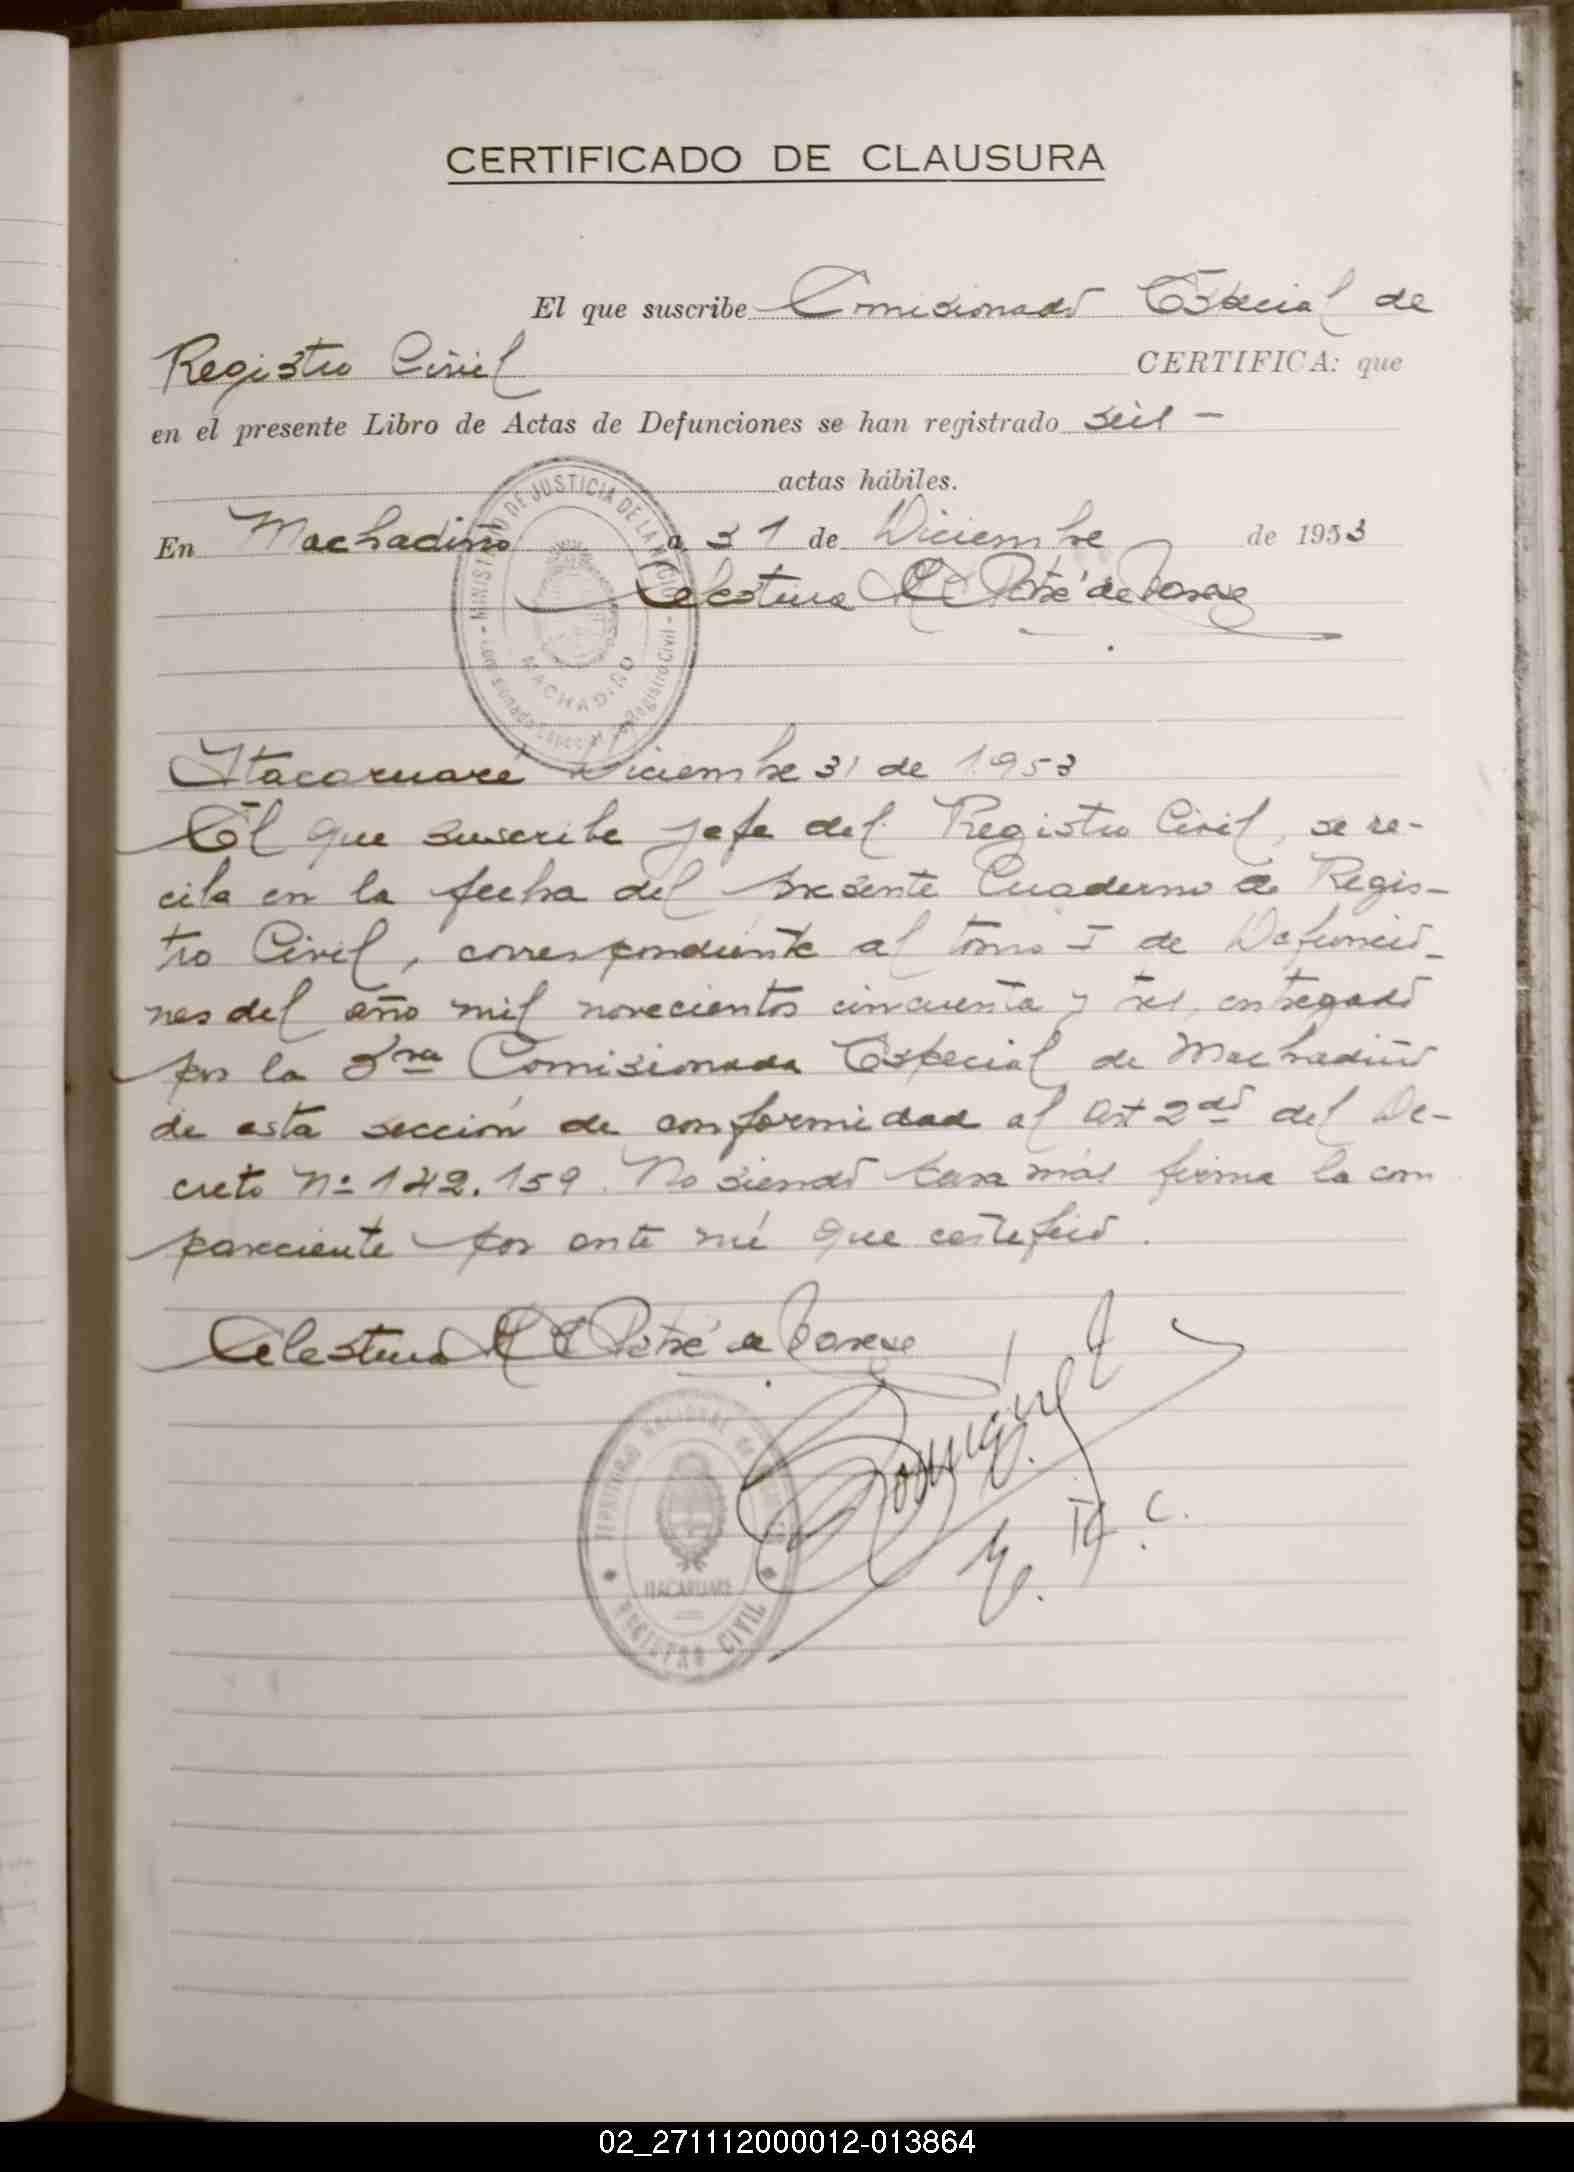 CERTIFICADO DE CLAUSURA
El que suscribe Comisionado Especial de
Registro Civil CERTIFICA: que
en el presente Libro de Actas de Defunciones se han registrado seis -
actas hábiles.
En Machadiño a 31 de Diciembre de 1953
Celestina
MINISTERIO DE JUSTICIA DE LA NACION
MACHADIÑO
Comisionado Especial de Registro Civil
Itacaruaré Diciembre 31 de 1953
El que suscribe Jefe del Registro Civil, se re-
cibe en la fecha del presente Cuaderno de Regis-
tro Civil, correspondiente al tomo I de Defuncio-
nes del año mil novecientos cincuenta y tres, entregado
por la Sra Comisionada Especial de Machadiño
de esta sección de conformidad al Art 2do del De-
creto Nº 142.159. No siendo para más firma la com
pareciente por ante mí que certifico.
Celestina
TERRITORIO NACIONAL DE
ITACARUARE
REGISTRO CIVIL
02_271112000012-013864